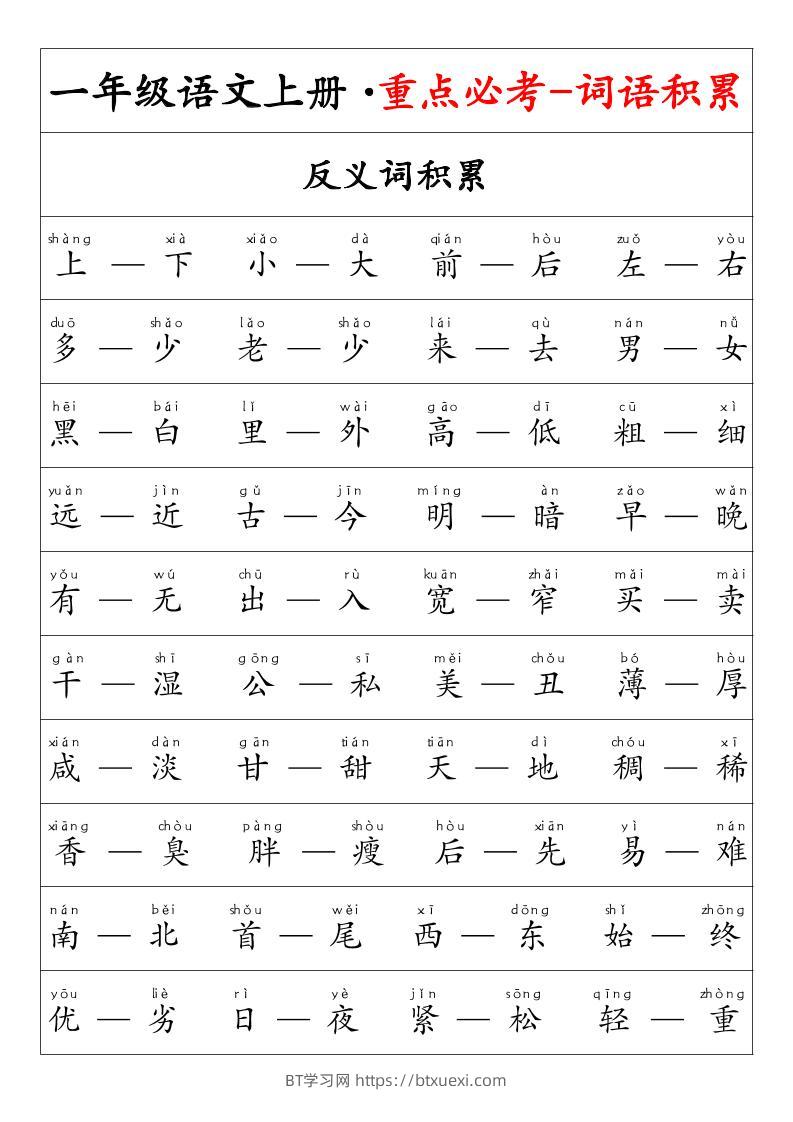 一年级语文上册·重点必考-词语积累
反义词积累
shàng xià xiǎo dà qián hòu zuǒ yòu
上 — 下 小 — 大 前 — 后 左 — 右
duō shǎo lǎo shǎo lái qù nán nǚ
多 — 少 老 — 少 来 — 去 男 — 女
hēi bái lǐ wài gāo dī cū xì
黑 — 白 里 — 外 高 — 低 粗 — 细
yuǎn jìn gǔ jīn míng àn zǎo wǎn
远 — 近 古 — 今 明 — 暗 早 — 晚
yǒu wú chū rù kuān zhǎi mǎi mài
有 — 无 出 — 入 宽 — 窄 买 — 卖
gàn shī gōng sī měi chǒu bó hòu
干 — 湿 公 — 私 美 — 丑 薄 — 厚
xián dàn gān tián tiān dì chóu xī
咸 — 淡 甘 — 甜 天 — 地 稠 — 稀
xiāng chòu pàng shòu hòu xiān yì nán
香 — 臭 胖 — 瘦 后 — 先 易 — 难
nán běi shǒu wěi xī dōng shǐ zhōng
南 — 北 首 — 尾 西 — 东 始 — 终
yōu liè rì yè jǐn sōng qīng zhòng
优 — 劣 日 — 夜 紧 — 松 轻 — 重
BT学习网 https://btxuexi.com